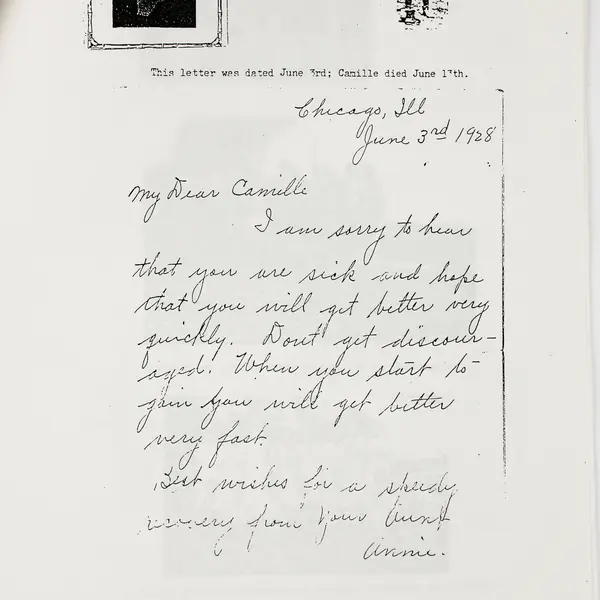 This letter was dated June 3rd; Camille died June 13th.
Chicago, Ill
June 3rd 1928
My Dear Camille
I am sorry to hear
that you are sick and hope
that you will get better very
quickly. Don't get discour-
aged. When you start to
gain you will get better
very fast.
Best wishes for a speedy
recovery from your Aunt
Annie.